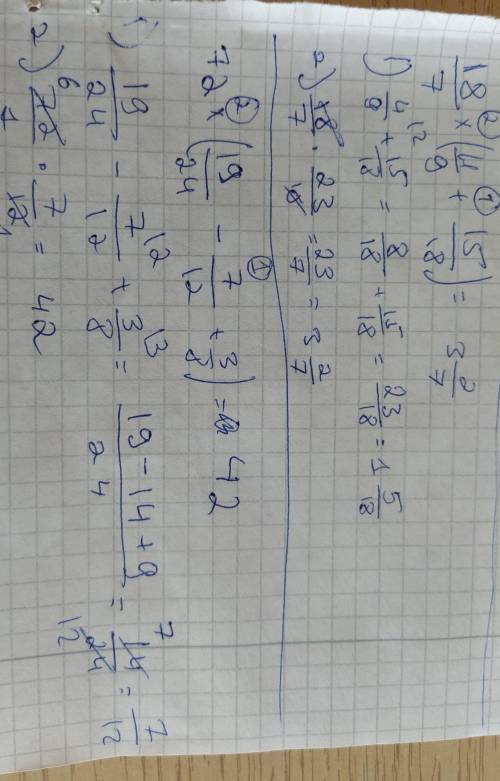 18/7 × (4/9 + 15/18) = 3 2/7
② ①
1) 4/9 |2 + 15/18 = 8/18 + 15/18 = 23/18 = 1 5/18
2) 18/7 · 23/18 = 23/7 = 3 2/7
72 × (19/24 - 7/12 + 3/8) = 42
② ①
1) 19/24 - 7/12 |2 + 3/8 |3 = (19 - 14 + 9)/24 = 14/24 = 7/12
7 12
2) 72 · 7/12 = 42
6 1 1